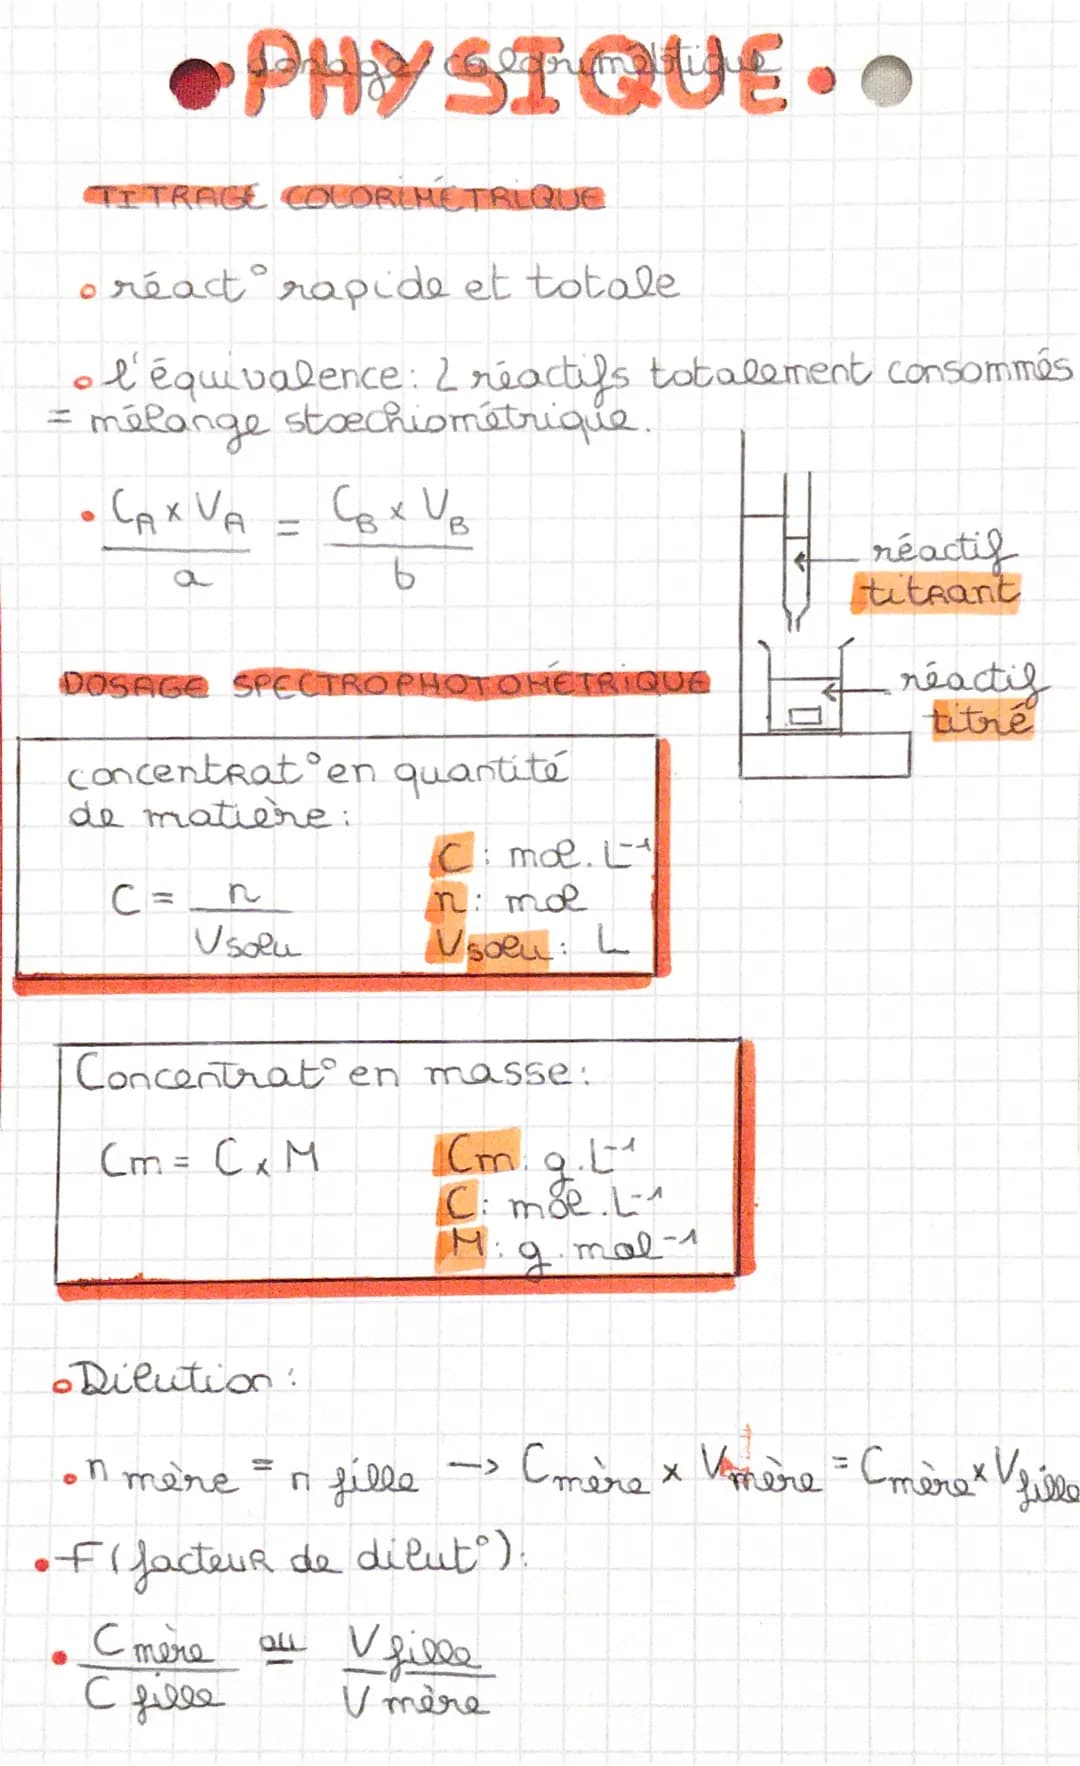 • PHYSIQUE •
TITRAGE COLORIMÉTRIQUE
• réact° rapide et totale
• l'équivalence : 2 réactifs totalement consommés
= mélange stœchiométrique.
• CA x VA / a = CB x VB / b
réactif
titrant
réactif
titré
DOSAGE SPECTROPHOTOMÉTRIQUE
concentrat° en quantité
de matière :
C = n / Vsolu
C : mol. L-1
n : mol
Vsolu : L
Concentrat° en masse :
Cm = C x M
Cm : g.L-1
C : mol.L-1
M : g.mol-1
• Dilution :
• n mère = n fille -> Cmère x Vmère = Cmère x Vfille
• F (facteur de dilut°) :
• C mère / C fille ou V fille / V mère